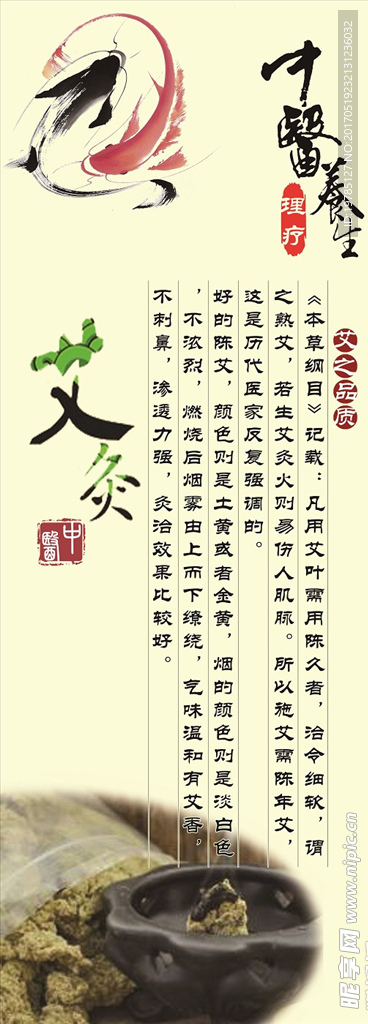 中醫養生
理疗
艾之品质
《本草纲目》记载：凡用艾叶需用陈久者，治令细软，谓
之熟艾，若生艾灸火则易伤人肌脉。所以施艾需陈年艾，
这是历代医家反复强调的。
好的陈艾，颜色则是土黄或者金黄，烟的颜色则是淡白色
，不浓烈，燃烧后烟雾由上而下缭绕，气味温和有艾香，
不刺鼻，渗透力强，灸治效果比较好。
艾灸
中醫
昵享网 www.nipic.cn